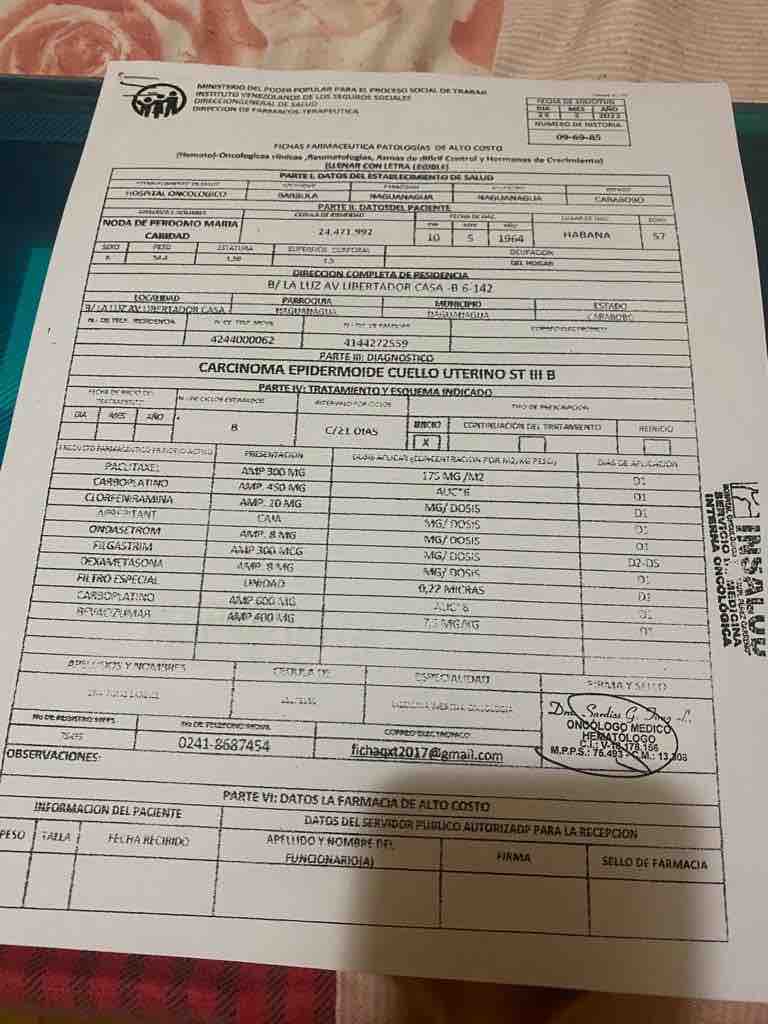 MINISTERIO DEL PODER POPULAR PARA EL PROCESO SOCIAL DE TRABAJO
INSTITUTO VENEZOLANOS DE LOS SEGUROS SOCIALES
DIRECCION GENERAL DE SALUD
DIRECCION DE FARMACOS-TERAPEUTICA
FECHA DE SOLICITUD
DIA MES AÑO
2022
NUMERO DE HISTORIA
09-69-85
FICHAS FARMACEUTICA PATOLOGÍAS DE ALTO COSTO
(Hemato)-Oncologicas clínicas, Reumatologías, Asmas de difícil Control y Hormonas de Crecimiento)
(LLENAR CON LETRA LEGIBLE)
PARTE I. DATOS DEL ESTABLECIMIENTO DE SALUD
HOSPITAL ONCOLOGICO BARBULA NAGUANAGUA NAGUANAGUA CARABOBO
PARTE II. DATOS DEL PACIENTE
NODA DE PERDOMO MARIA CARIDAD 24,471,992 10 5 1964 HABANA 57
SEXO PESO ESTATURA SUPERFICIE CORPORAL OCUPACION
DEL HOGAR
DIRECCION COMPLETA DE RESIDENCIA
B/ LA LUZ AV LIBERTADOR CASA -B 6-142
LOCALIDAD PARROQUIA MUNICIPIO ESTADO
B/ LA LUZ AV LIBERTADOR CASA NAGUANAGUA NAGUANAGUA CARABOBO
N.- DE TELF. RESIDENCIA N. DE TELF. MOVIL CORREO ELECTRONICO
4244000062 4144272559
PARTE III: DIAGNOSTICO
CARCINOMA EPIDERMOIDE CUELLO UTERINO ST III B
PARTE IV: TRATAMIENTO Y ESQUEMA INDICADO
FECHA DE INICIO DEL TRATAMIENTO N.- DE CICLOS ESTIMADOS INTERVALO POR CICLOS TIPO DE PRESCRIPCION
DIA MES AÑO C/21 DIAS INICIO CONTINUACION DEL TRATAMIENTO REINICIO
X
PRODUCTO FARMACEUTICO PRINCIPIO ACTIVO PRESENTACION DOSIS APLICAR (CONCENTRACIÓN POR M2/KG PESO) DIAS DE APLICACIÓN
PACLITAXEL AMP 300 MG 175 MG/M2 D1
CARBOPLATINO AMP. 450 MG AUC*6 D1
CLORFENIRAMINA AMP. 10 MG MG/ DOSIS D1
APREPITANT CAJA MG/ DOSIS D1
ONDASETROM AMP. 8 MG MG/ DOSIS D1
FILGASTRIM AMP 300 MCG MG/ DOSIS D2-D5
DEXAMETASONA AMP. 8 MG MG/ DOSIS D1
FILTRO ESPECIAL UNIDAD 0,22 MICRAS D1
CARBOPLATINO AMP 600 MG AUC*6 D1
BEVACIZUMAB AMP 400 MG 7,5 MG/KG D1
INSALUD
SERVICIO DE MEDICINA
INTERNA ONCOLÓGICA
APELLIDOS Y NOMBRES CEDULA DE ESPECIALIDAD FIRMA Y SELLO
MEDICINA INTERNA ONCOLOGIA
ONCÓLOGO MEDICO
HEMATÓLOGO
C.I.: V-18.178.156
M.P.P.S.: 76.493 - C.M.: 13.308
No DE REGISTRO MPPS No DE TELEFONO MOVIL CORREO ELECTRONICO
76493 0241-8687454 fichaqxt2017@gmail.com
OBSERVACIONES:
PARTE VI: DATOS LA FARMACIA DE ALTO COSTO
INFORMACION DEL PACIENTE DATOS DEL SERVIDOR PUBLICO AUTORIZADP PARA LA RECEPCION
PESO TALLA FECHA RECIBIDO APELLIDO Y NOMBRE DEL FUNCIONARIO(A) FIRMA SELLO DE FARMACIA